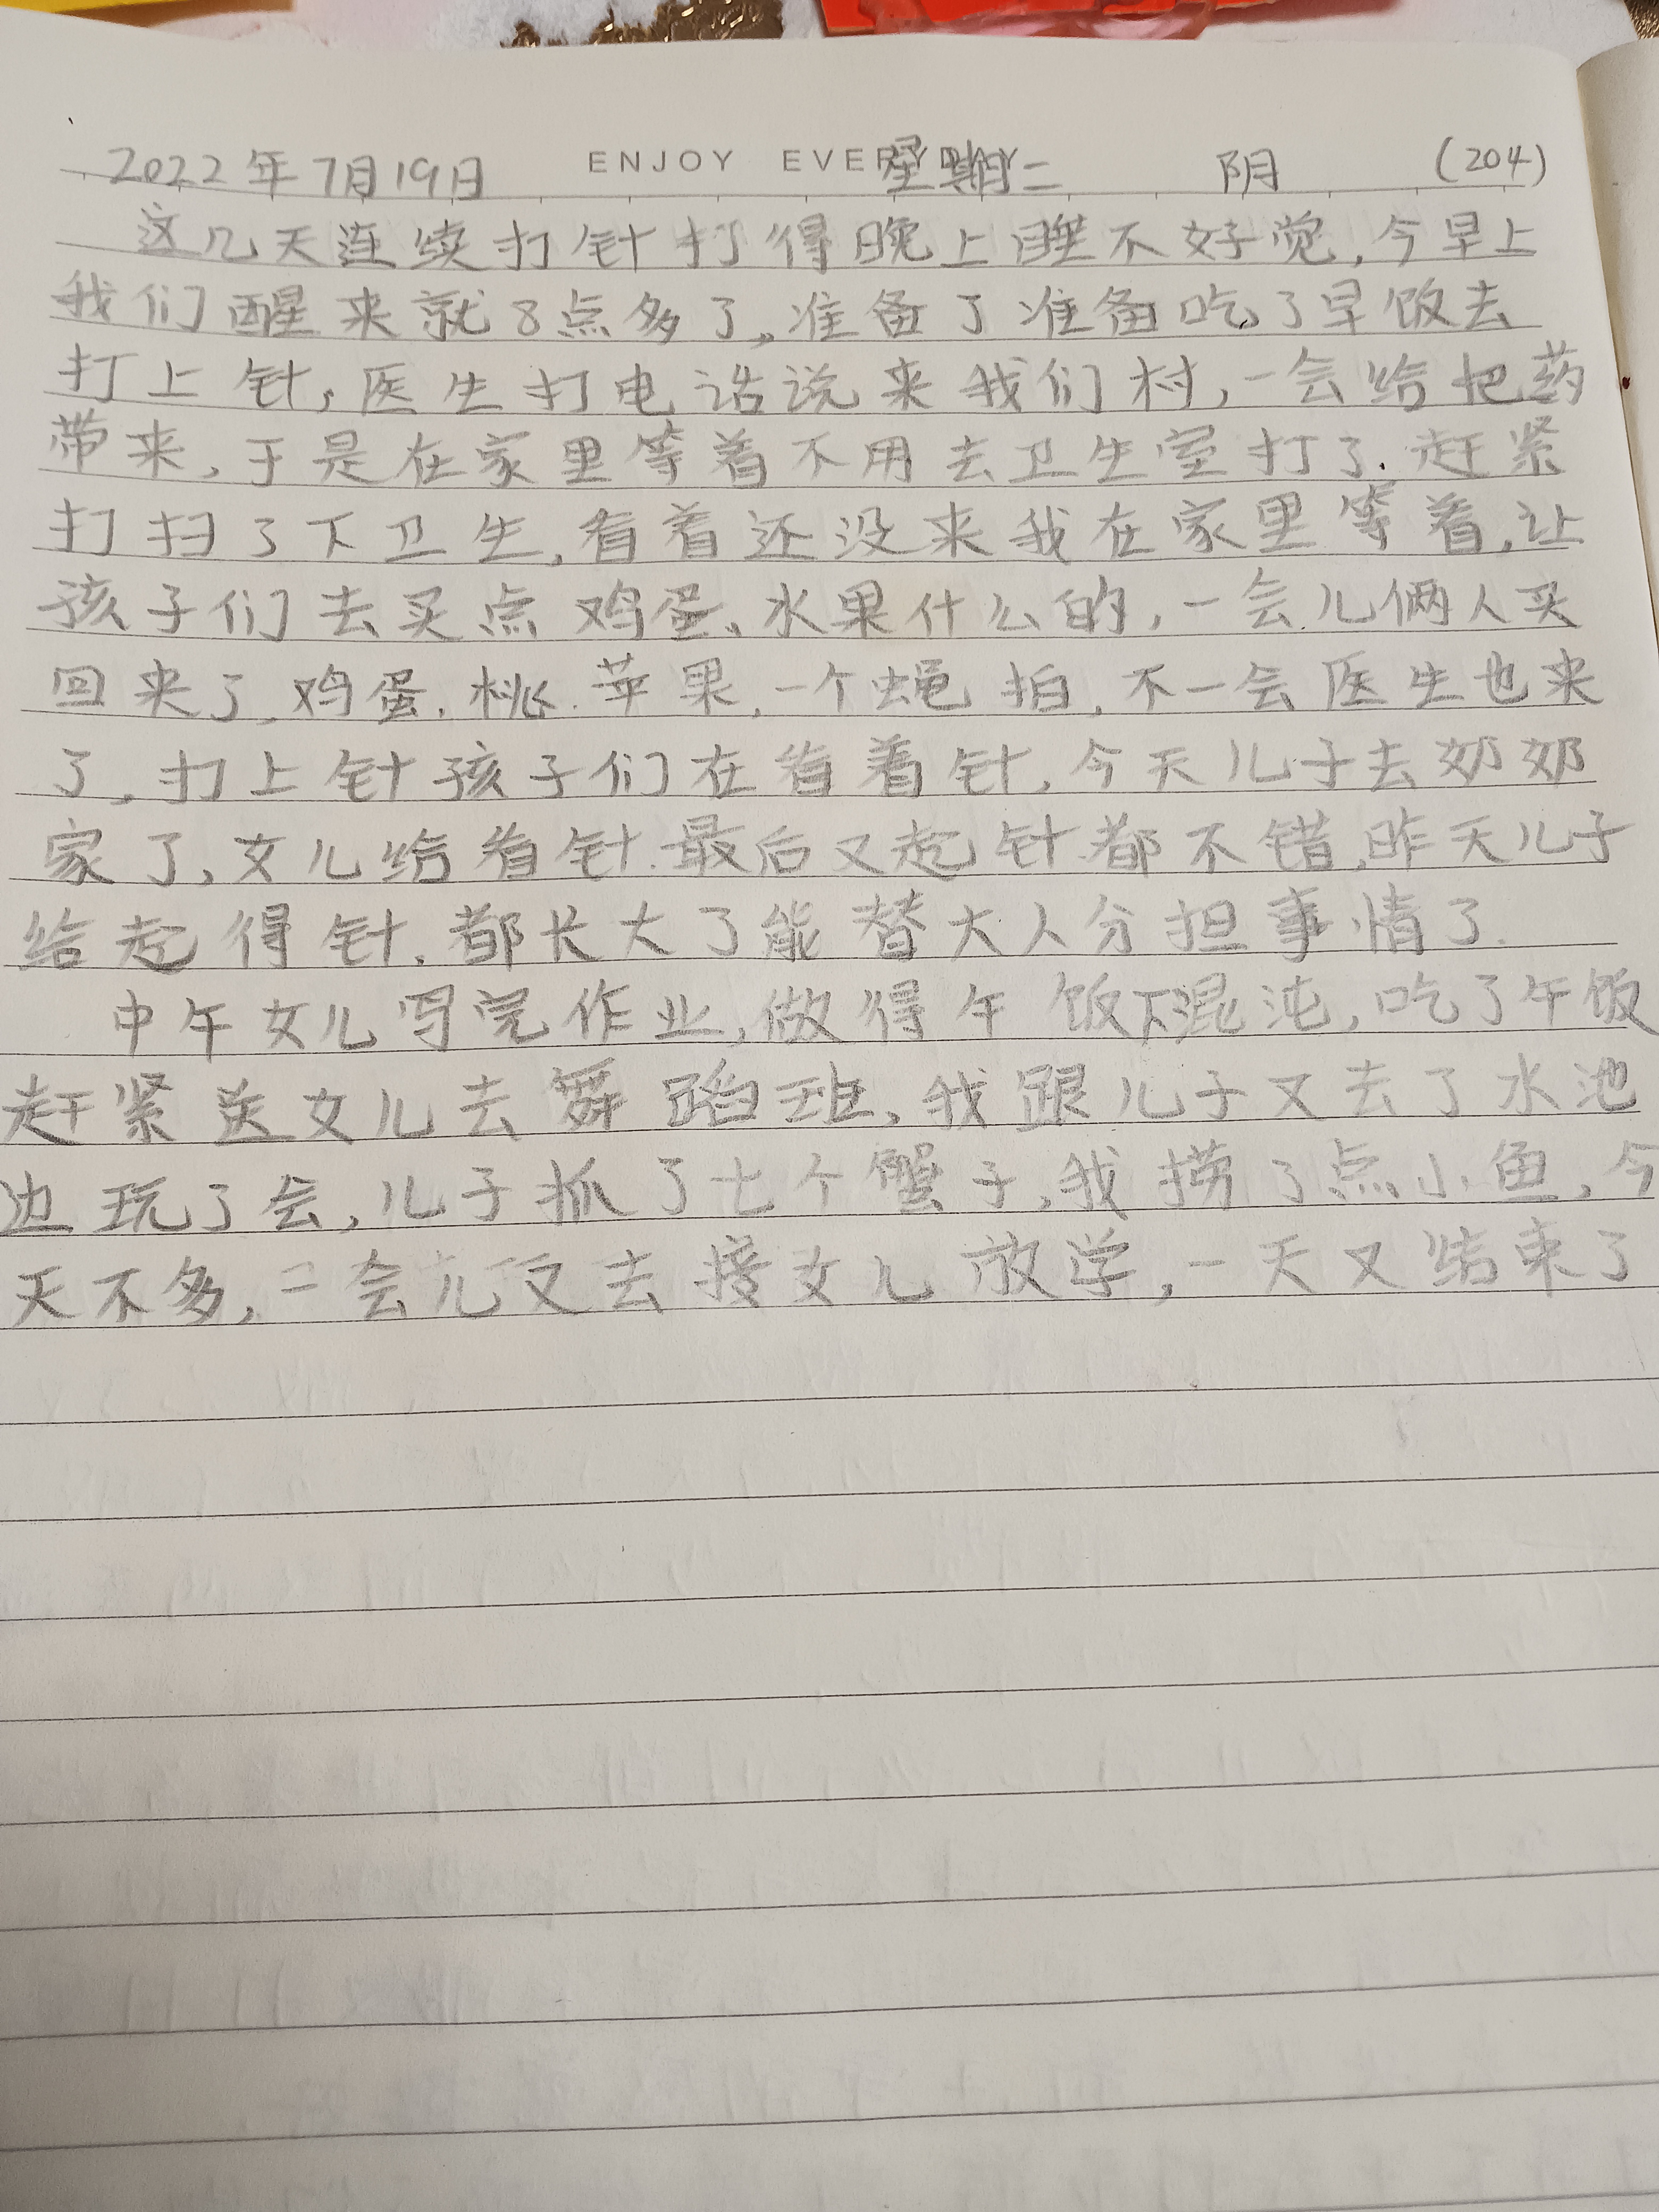 ENJOY EVERYDAY
2022年7月19日 星期二 阴 (204)
这几天连续打针打得晚上睡不好觉,今早上
我们醒来就8点多了,准备了准备吃了早饭去
打上针,医生打电话说来我们村,一会给把药
带来,于是在家里等着不用去卫生室打了.赶紧
打扫了下卫生,看着还没来我在家里等着,让
孩子们去买点鸡蛋、水果什么的,一会儿俩人买
回来了,鸡蛋.桃.苹果,一个蝇拍,不一会医生也来
了,打上针孩子们在看着针,今天儿子去奶奶
家了,女儿给看针.最后又起针都不错,昨天儿子
给起得针.都长大了能替大人分担事情了.
中午女儿写完作业,做得午饭下混沌,吃了午饭
赶紧送女儿去舞蹈班,我跟儿子又去了水池
边玩了会,儿子抓了七个蟹子,我捞了点小鱼,今
天不多,一会儿又去接女儿放学,一天又结束了